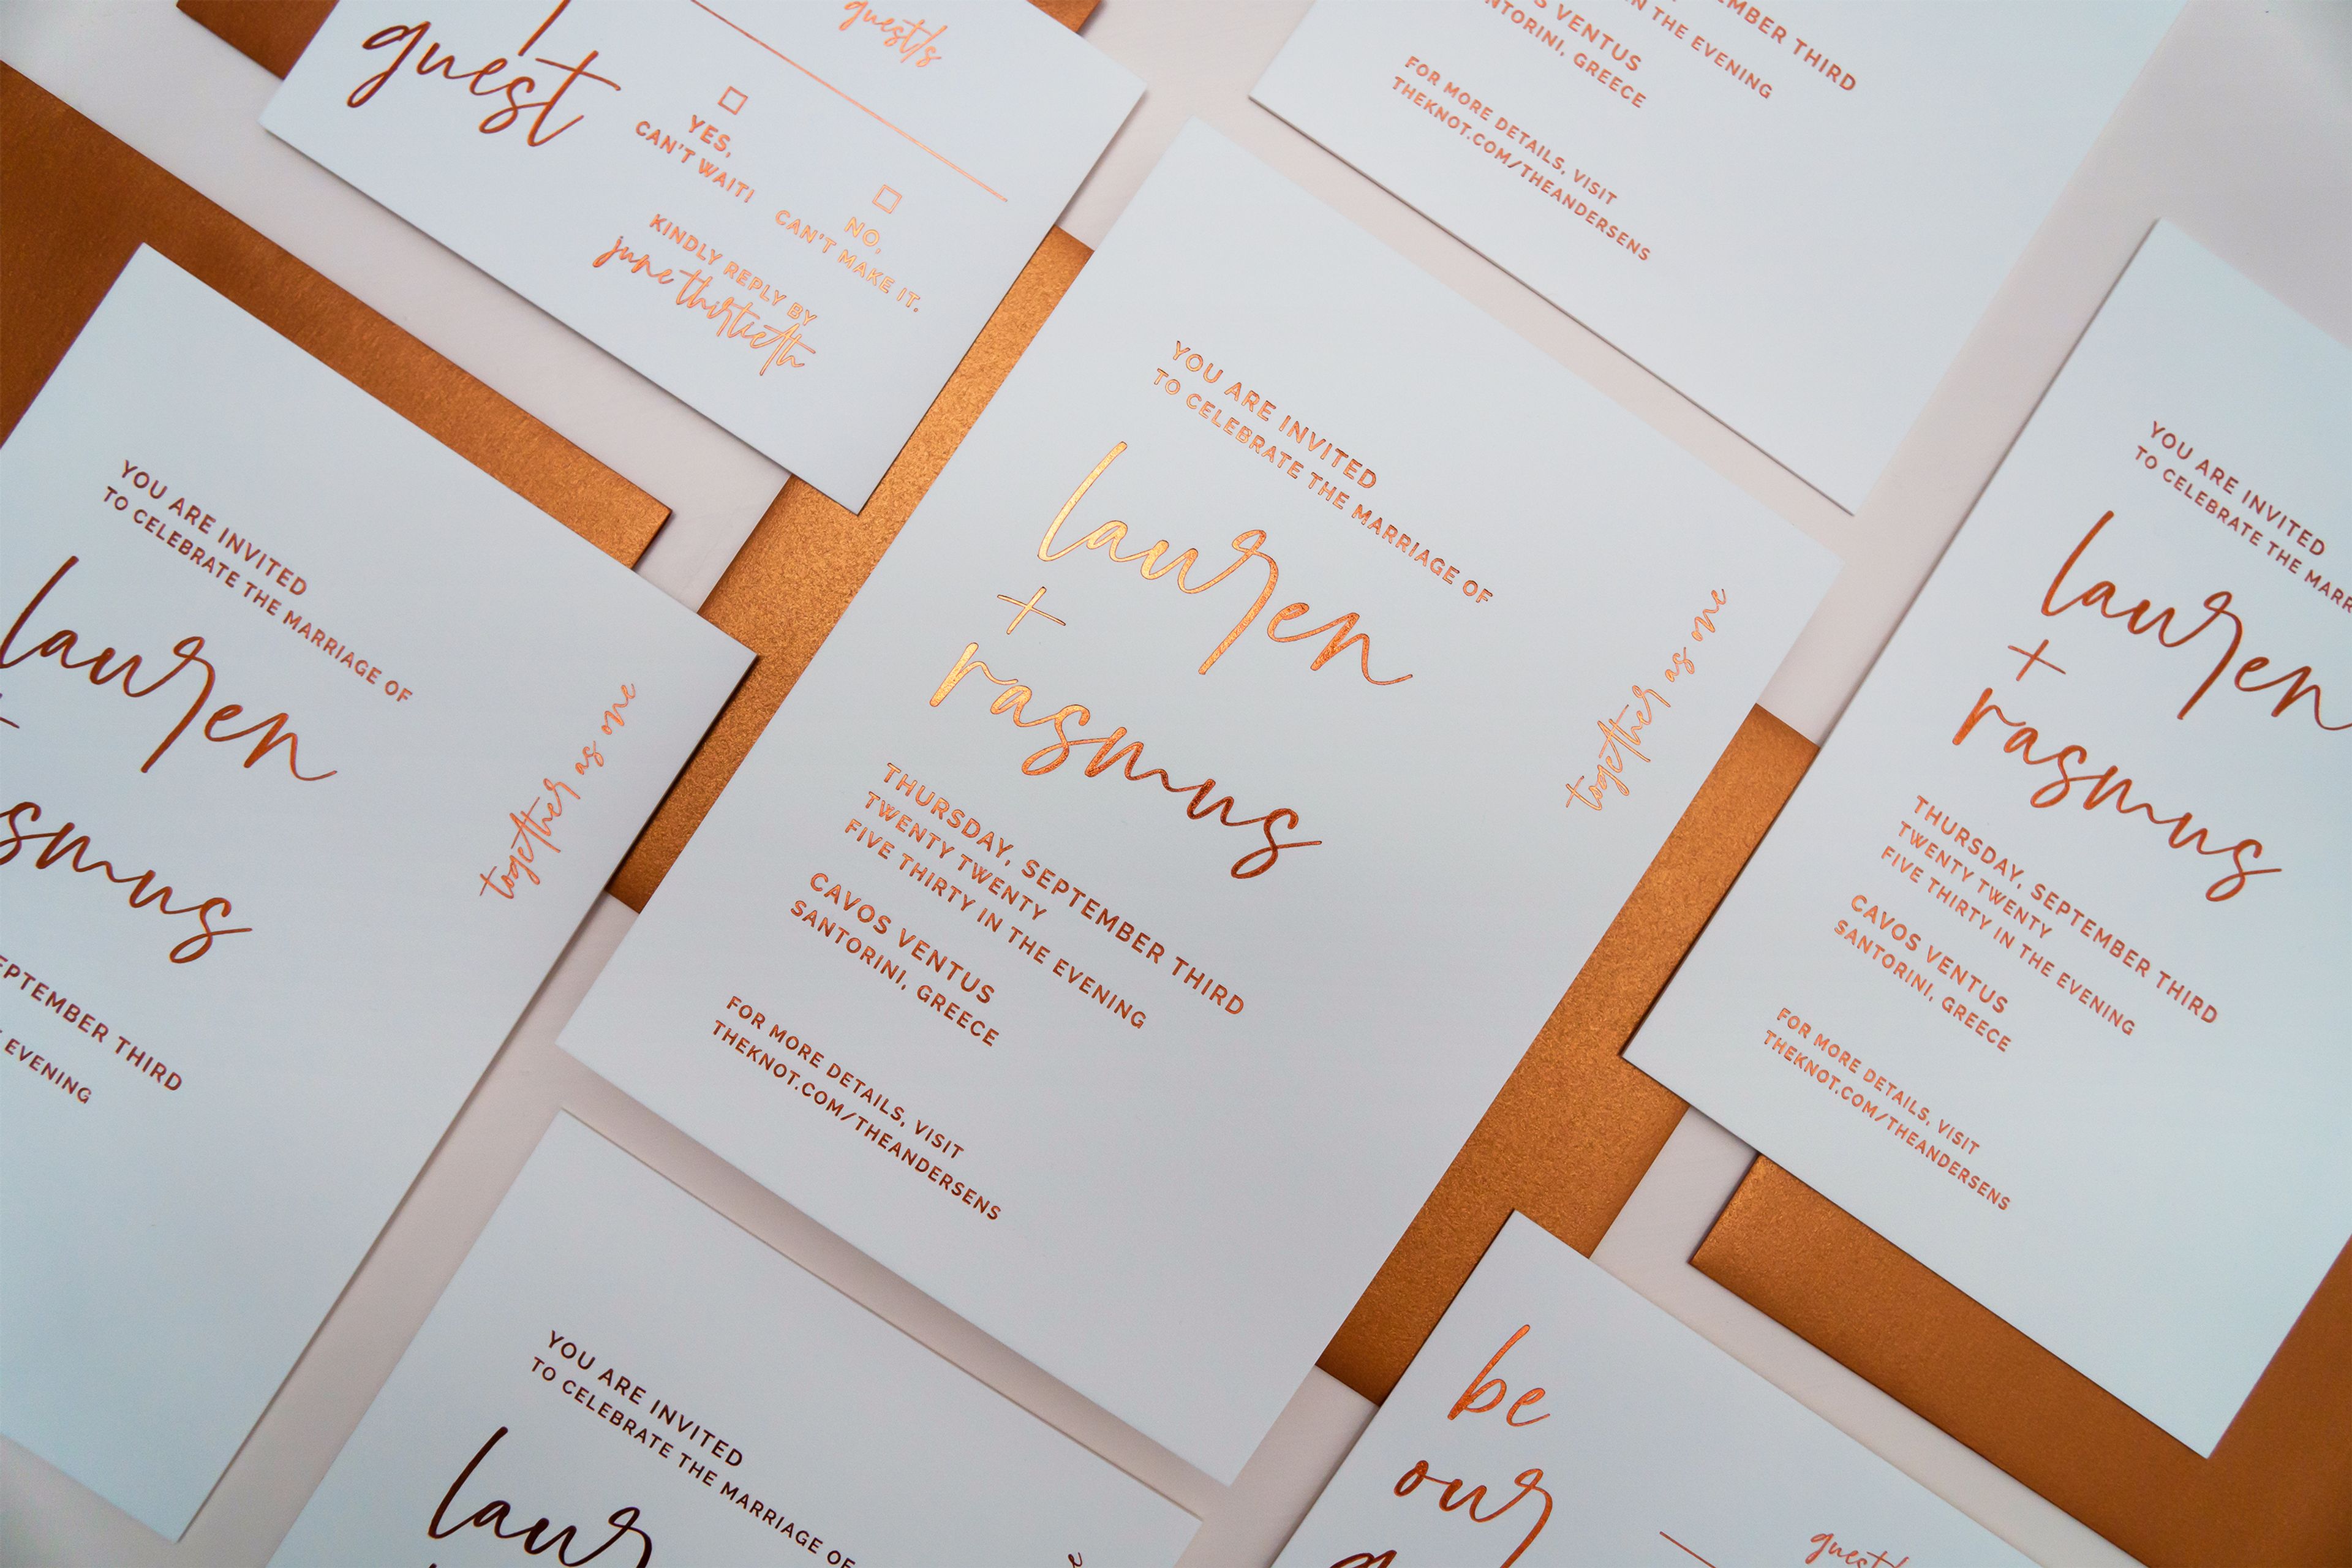 guest
guest/s
YES,
CAN'T WAIT!
NO,
CAN'T MAKE IT.
KINDLY REPLY BY
june thirtieth
EMBER THIRD
IN THE EVENING
S VENTUS
NTORINI, GREECE
FOR MORE DETAILS, VISIT
THEKNOT.COM/THEANDERSENS
YOU ARE INVITED
TO CELEBRATE THE MARRIAGE OF
lauren
+
smus
EPTEMBER THIRD
EVENING
together as one
YOU ARE INVITED
TO CELEBRATE THE MARRIAGE OF
lauren
+
rasmus
THURSDAY, SEPTEMBER THIRD
TWENTY TWENTY
FIVE THIRTY IN THE EVENING
CAVOS VENTUS
SANTORINI, GREECE
FOR MORE DETAILS, VISIT
THEKNOT.COM/THEANDERSENS
together as one
YOU ARE INVITED
TO CELEBRATE THE MARR
lauren
+
rasmus
THURSDAY, SEPTEMBER THIRD
TWENTY TWENTY
FIVE THIRTY IN THE EVENING
CAVOS VENTUS
SANTORINI, GREECE
FOR MORE DETAILS, VISIT
THEKNOT.COM/THEANDERSENS
YOU ARE INVITED
TO CELEBRATE THE MARRIAGE OF
laur
be
our
guest/